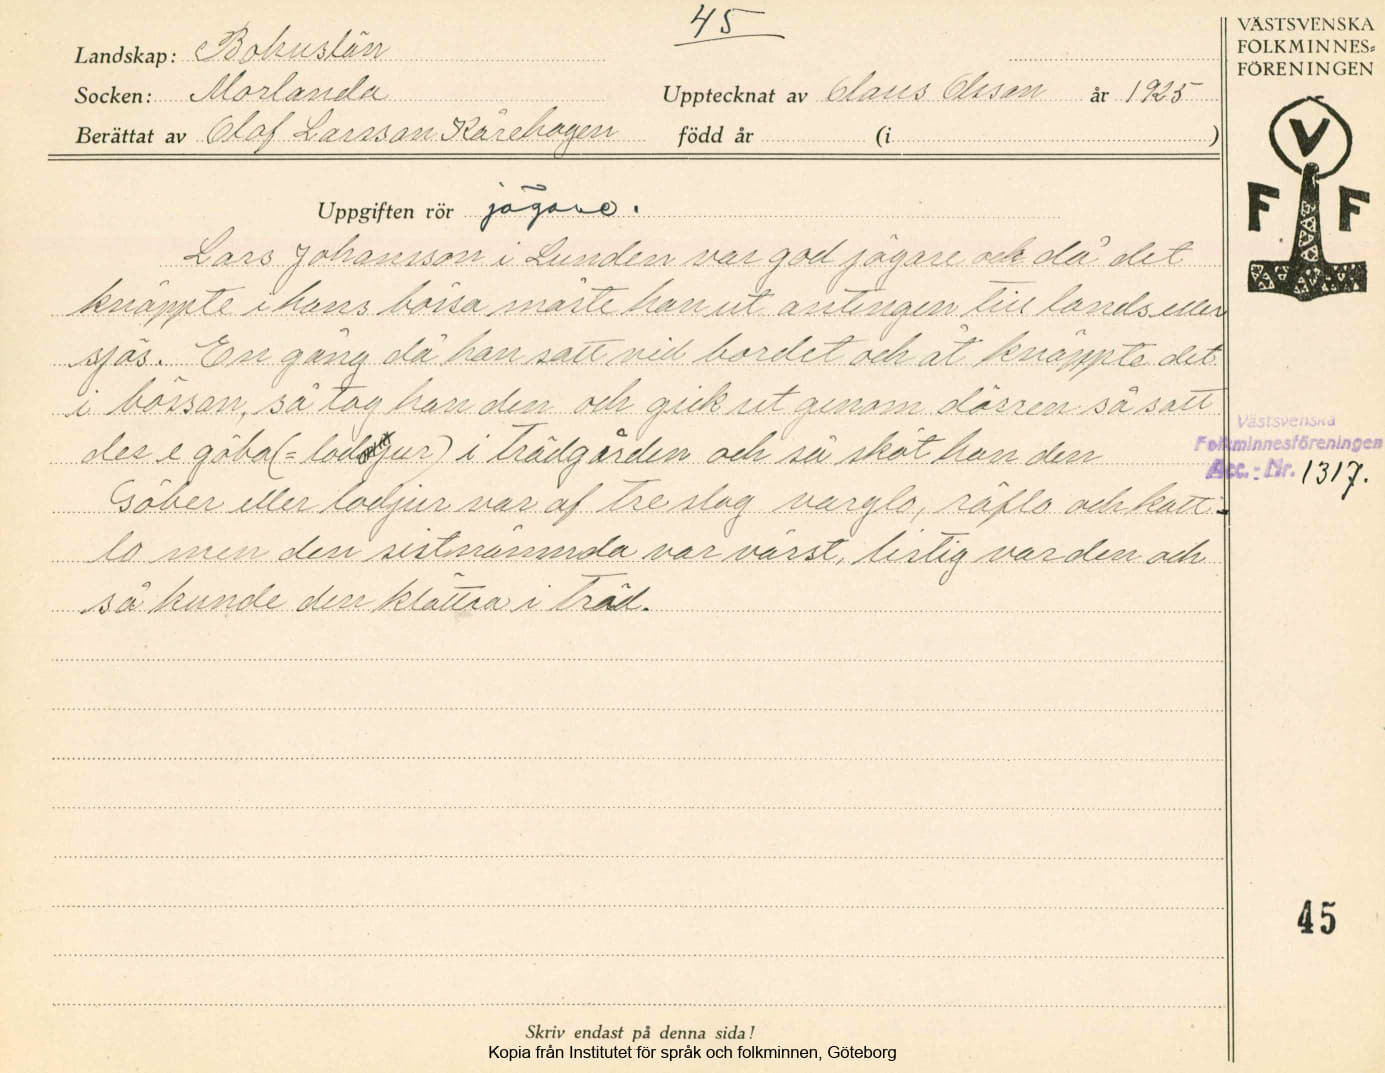 45
Landskap: Bohuslän
Socken: Morlanda
Upptecknat av Claus Olsson år 1925
Berättat av Olof Larsson Kårehogen född år (i )
Uppgiften rör jägare.
Lars Johansson i Lunden var god jägare och då det
knäppte i hans bössa måste han ut antingen till lands eller
sjös. En gång då han satt vid bordet och åt knäppte det
i bössan, så tog han den och gick ut genom dörren så satt
der e göba (= lodjur) i trädgården och så sköt han den
Göber eller lodjur var af tre slag varglo, räflo och katt-
lo men den sistnämnda var värst, listig var den och
så kunde den klättra i träd.
Skriv endast på denna sida!
Kopia från Institutet för språk och folkminnen, Göteborg
VÄSTSVENSKA
FOLKMINNES=
FÖRENINGEN
V
F F
Västsvenska
Folkminnesföreningen
Acc.-Nr. 1317.
45